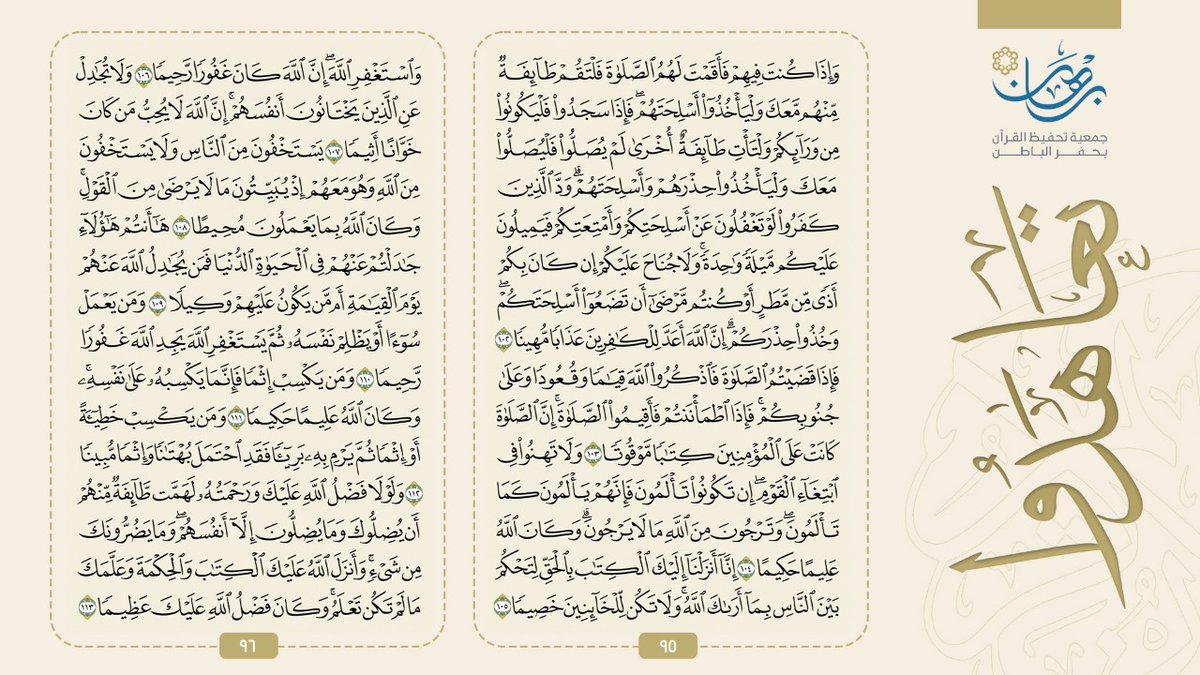 برهان
جمعية تحفيظ القرآن
بحفر الباطن
تعاهدوا
وَإِذَا كُنتَ فِيهِمْ فَأَقَمْتَ لَهُمُ ٱلصَّلَوٰةَ فَلْتَقُمْ طَآئِفَةٌ
مِّنْهُم مَّعَكَ وَلْيَأْخُذُوٓا۟ أَسْلِحَتَهُمْ ۖ فَإِذَا سَجَدُوا۟ فَلْيَكُونُوا۟
مِن وَرَآئِكُمْ وَلْتَأْتِ طَآئِفَةٌ أُخْرَىٰ لَمْ يُصَلُّوا۟ فَلْيُصَلُّوا۟
مَعَكَ وَلْيَأْخُذُوا۟ حِذْرَهُمْ وَأَسْلِحَتَهُمْ ۗ وَدَّ ٱلَّذِينَ
كَفَرُوا۟ لَوْ تَغْفُلُونَ عَنْ أَسْلِحَتِكُمْ وَأَمْتِعَتِكُمْ فَيَمِيلُونَ
عَلَيْكُم مَّيْلَةً وَٰحِدَةً ۚ وَلَا جُنَاحَ عَلَيْكُمْ إِن كَانَ بِكُمْ
أَذًى مِّن مَّطَرٍ أَوْ كُنتُم مَّرْضَىٰٓ أَن تَضَعُوٓا۟ أَسْلِحَتَكُمْ ۖ
وَخُذُوا۟ حِذْرَكُمْ ۗ إِنَّ ٱللَّهَ أَعَدَّ لِلْكَٰفِرِينَ عَذَابًا مُّهِينًا ١٠٢
فَإِذَا قَضَيْتُمُ ٱلصَّلَوٰةَ فَٱذْكُرُوا۟ ٱللَّهَ قِيَٰمًا وَقُعُودًا وَعَلَىٰ
جُنُوبِكُمْ ۚ فَإِذَا ٱطْمَأْنَنتُمْ فَأَقِيمُوا۟ ٱلصَّلَوٰةَ ۚ إِنَّ ٱلصَّلَوٰةَ
كَانَتْ عَلَى ٱلْمُؤْمِنِينَ كِتَٰبًا مَّوْقُوتًا ١٠٣ وَلَا تَهِنُوا۟ فِى
ٱبْتِغَآءِ ٱلْقَوْمِ ۖ إِن تَكُونُوا۟ تَأْلَمُونَ فَإِنَّهُمْ يَأْلَمُونَ كَمَا
تَأْلَمُونَ ۖ وَتَرْجُونَ مِنَ ٱللَّهِ مَا لَا يَرْجُونَ ۗ وَكَانَ ٱللَّهُ
عَلِيمًا حَكِيمًا ١٠٤ إِنَّآ أَنزَلْنَآ إِلَيْكَ ٱلْكِتَٰبَ بِٱلْحَقِّ لِتَحْكُمَ
بَيْنَ ٱلنَّاسِ بِمَآ أَرَىٰكَ ٱللَّهُ ۚ وَلَا تَكُن لِّلْخَآئِنِينَ خَصِيمًا ١٠٥
٩٥
وَٱسْتَغْفِرِ ٱللَّهَ ۖ إِنَّ ٱللَّهَ كَانَ غَفُورًا رَّحِيمًا ١٠٦ وَلَا تُجَٰدِلْ
عَنِ ٱلَّذِينَ يَخْتَانُونَ أَنفُسَهُمْ ۚ إِنَّ ٱللَّهَ لَا يُحِبُّ مَن كَانَ
خَوَّانًا أَثِيمًا ١٠٧ يَسْتَخْفُونَ مِنَ ٱلنَّاسِ وَلَا يَسْتَخْفُونَ
مِنَ ٱللَّهِ وَهُوَ مَعَهُمْ إِذْ يُبَيِّتُونَ مَا لَا يَرْضَىٰ مِنَ ٱلْقَوْلِ ۚ
وَكَانَ ٱللَّهُ بِمَا يَعْمَلُونَ مُحِيطًا ١٠٨ هَٰٓأَنتُمْ هَٰٓؤُلَآءِ
جَٰدَلْتُمْ عَنْهُمْ فِى ٱلْحَيَوٰةِ ٱلدُّنْيَا فَمَن يُجَٰدِلُ ٱللَّهَ عَنْهُمْ
يَوْمَ ٱلْقِيَٰمَةِ أَم مَّن يَكُونُ عَلَيْهِمْ وَكِيلًا ١٠٩ وَمَن يَعْمَلْ
سُوٓءًا أَوْ يَظْلِمْ نَفْسَهُۥ ثُمَّ يَسْتَغْفِرِ ٱللَّهَ يَجِدِ ٱللَّهَ غَفُورًا
رَّحِيمًا ١١٠ وَمَن يَكْسِبْ إِثْمًا فَإِنَّمَا يَكْسِبُهُۥ عَلَىٰ نَفْسِهِۦ ۚ
وَكَانَ ٱللَّهُ عَلِيمًا حَكِيمًا ١١١ وَمَن يَكْسِبْ خَطِيٓـَٔةً
أَوْ إِثْمًا ثُمَّ يَرْمِ بِهِۦ بَرِيٓـًٔا فَقَدِ ٱحْتَمَلَ بُهْتَٰنًا وَإِثْمًا مُّبِينًا
١١٢ وَلَوْلَا فَضْلُ ٱللَّهِ عَلَيْكَ وَرَحْمَتُهُۥ لَهَمَّت طَّآئِفَةٌ مِّنْهُمْ
أَن يُضِلُّوكَ وَمَا يُضِلُّونَ إِلَّآ أَنفُسَهُمْ ۖ وَمَا يَضُرُّونَكَ
مِن شَىْءٍ ۚ وَأَنزَلَ ٱللَّهُ عَلَيْكَ ٱلْكِتَٰبَ وَٱلْحِكْمَةَ وَعَلَّمَكَ
مَا لَمْ تَكُن تَعْلَمُ ۚ وَكَانَ فَضْلُ ٱللَّهِ عَلَيْكَ عَظِيمًا ١١٣
٩٦